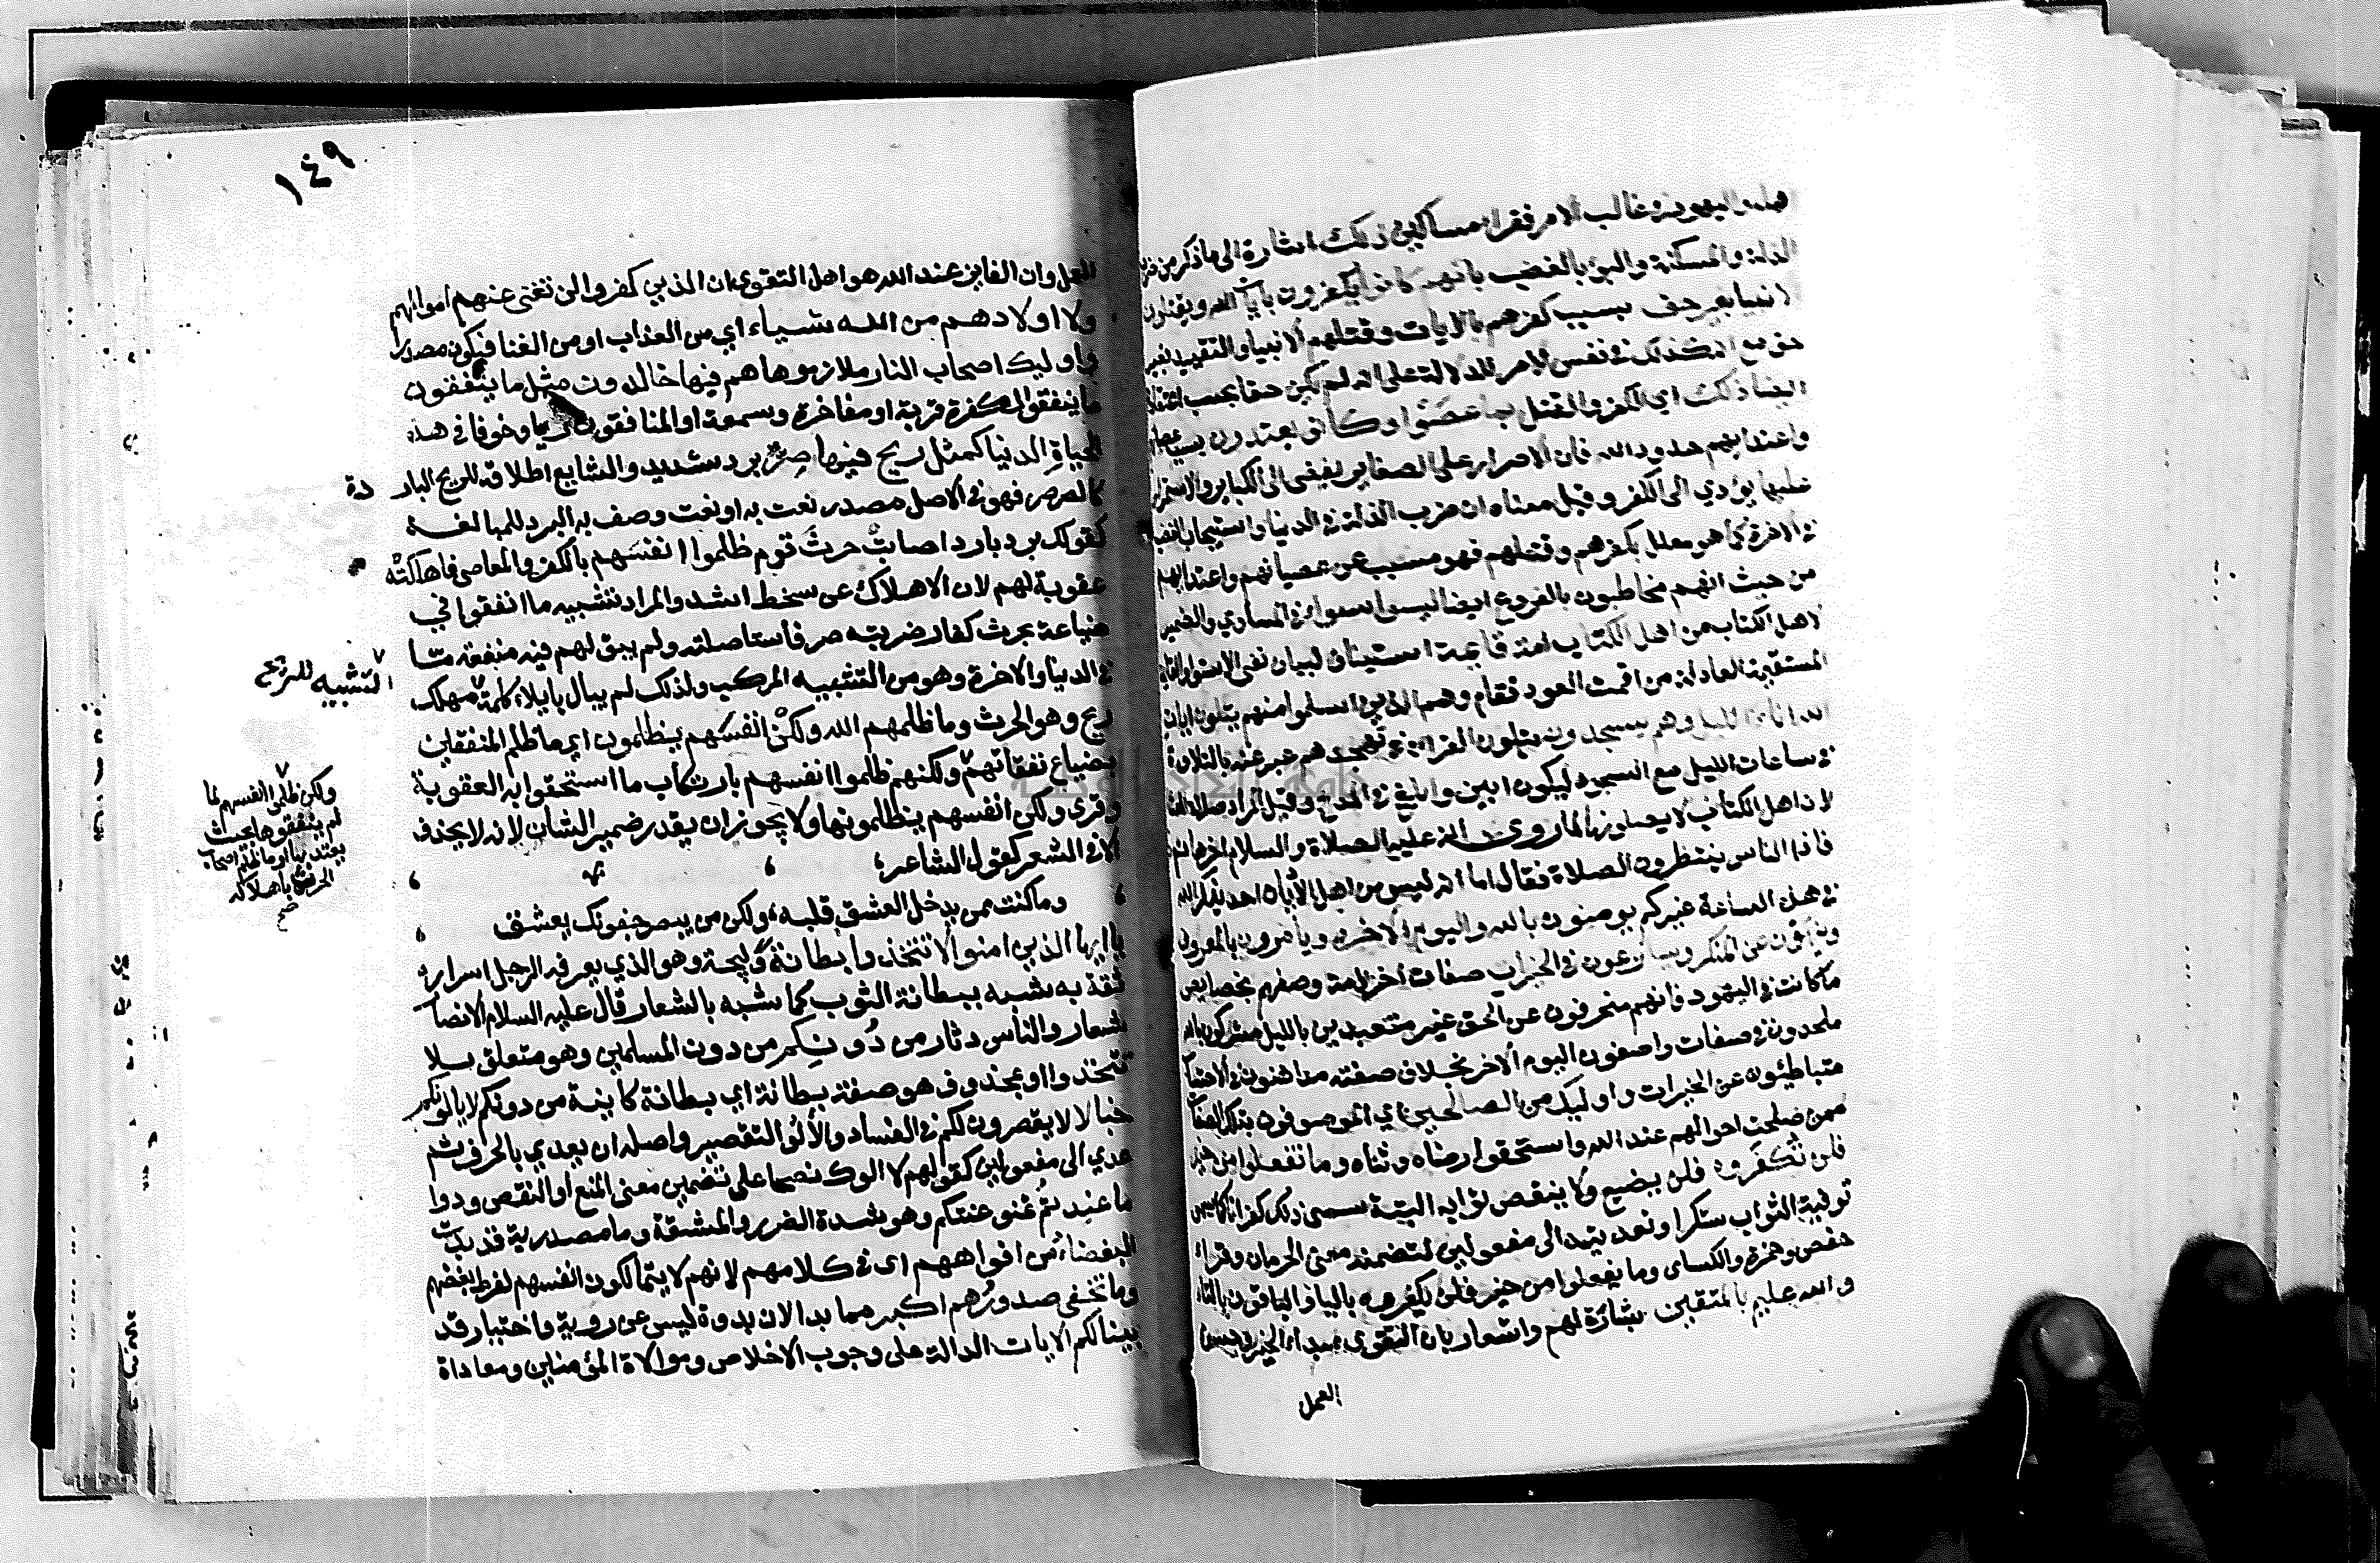 اهله واليهود في غالب الامر فقراء مساكين ذلك اشارة الى ما ذكر من ضرب
الذلة والمسكنة والبوء بالغضب بانهم كانوا يكفرون بايات الله ويقتلون
الانبيا بغير حق بسبب كفرهم بالايات وقتلهم الانبيا والتقييد بغير
حق مع انه كذلك في نفس الامر للدلالة على انه لم يكن حقا بحسب اعتقادهم
ايضا ذلك اي الكفر والقتل بما عصوا وكانوا يعتدون بسبب عصيانهم
واعتدايهم حدود الله فان الاصرار على الصغاير يفضى الى الكباير والاستمرار
عليها يؤدي الى الكفر وقيل معناه ان ضرب الذلة في الدنيا واستيجاب الغضب
في الاخرة كما هو معلل بكفرهم وقتلهم فهو مسبب عن عصيانهم واعتدايهم
من حيث انهم مخاطبون بالفروع ايضا ليسوا سواء في المساوي والضمير
لاهل الكتاب من اهل الكتاب امة قايمة استيناف لبيان نفى الاستواء والقايمة
المستقيمة العادلة من اقمت العود فقام وهم الذين اسلموا منهم يتلون ايات
الله اناء الليل وهم يسجدون يتلون القران في تهجدهم عبر عنه بالتلاوة
في ساعات الليل مع السجود ليكون ابين وابلغ في المدح وقيل المراد صلاة العشا
لان اهل الكتاب لا يصلونها لما روي انه عليه الصلاة والسلام اخرها ثم خرج
فاذا الناس ينتظرون الصلاة فقال اما انه ليس من اهل الاديان احد يذكر الله
في هذه الساعة غيركم يومنون بالله واليوم الاخر ويأمرون بالمعروف
وينهون عن المنكر ويسارعون في الخيرات صفات اخر لامة وصفهم بخصايص
ما كانت في اليهود فانهم منحرفون عن الحق غير متعبدين بالليل مشركون بالله
ملحدون في صفاته واصفون اليوم الاخر بخلاف صفته مداهنون في الاحتساب
متباطئون عن الخيرات واوليك من الصالحين اي الموصوفون بتلك الصفات
ممن صلحت احوالهم عند الله واستحقوا رضاه وثناه وما تفعلوا من خير
فلن تُكفَروه فلن يضيع ولا ينقص ثوابه البتة سمى ذلك كفرانا كما سمى
توفية الثواب شكرا وتعديته الى مفعولين لتضمنه معنى الحرمان وقراء
حفص وحمزة والكساى وما يفعلوا من خير فلن يكفروه بالياء والباقون بالتاء
والله عليم بالمتقين بشارة لهم واشعار بان التقوى مبداء الخير وحسن
العمل
١٤٩
العمل وان الفايز عند الله هو اهل التقوى ان الذين كفروا لن تغنى عنهم اموالهم
ولا اولادهم من الله شيياء اي من العذاب او من الغنا فيكون مصدرا
واوليك اصحاب النار ملازموها هم فيها خالدون مثل ما ينفقون
ما ينفق الكفرة قربة او مفاخرة وسمعة او المنافقون ريا وخوفا في هذه
الحياة الدنيا كمثل ريح فيها صِرٌّ برد شديد والشايع اطلاقه للريح الباردة
كالصرصر فهو في الاصل مصدر نعت به او نعت وصف به البرد للمبالغة
كقولك برد بارد اصابت حرثَ قوم ظلموا انفسَهم بالكفر والمعاصى فاهلكتْه
عقوبة لهم لان الاهلاك عن سخط اشد والمراد تشبيه ما انفقوا في
ضياعة بحرث كفار ضربته صر فأستاصلته ولم يبق لهم فيه منفعة مّا
في الدنيا والاخرة وهو من التشبيه المركب ولذلك لم يبال بايلاء كلمة مهلك
التشبيه للريح
ريح وهو الحرث وما ظلمهم الله ولكنْ انفسَهم يظلمون اي ما ظلم المنفقين
بضياع نفقاتهم ولكنهم ظلموا انفسهم بارتكاب ما استحقوا به العقوبة
ولكن ظلموا انفسهم لما
لم ينفقوها بحيث
يعتد بها او ما ظلم اصحاب
الحرث باهلاكه
صح
وقرى ولكنّ انفسهم يظلمونها ولا يجوز ان يقدر ضمير الشان لانه لا يحذف
الا في الشعر كقول الشاعر
وما كنت ممن يدخل العشق قلبه ولكن من يبصر جفونك يعشق
يا ايها الذين امنوا لا تتخذوا بطانة وليجة وهو الذي يعرفه الرجل اسراره
ثقة به شبه ببطانة الثوب كما شبه بالشعار قال عليه السلام الانصار
شعار والناس دثار من دُونِكم من دون المسلمين وهو متعلق بلا
تتخذوا او بمحذوف هو صفة بطانة اي بطانة كاينة من دونكم لا يالونكم
خبالا لا يقصرون لكم في الفساد والألْوُ التقصير واصله ان يعدي بالحرف ثم
عدي الى مفعولين كقولهم لا الوك نصحا على تضمين معنى المنع او النقص ودوا
ما عنِتم تمنوا عنتكم وهو شدة الضرر والمشقة وما مصدرية قد بدت
البغضاءُ من افواههم اى في كلامهم لانهم لا يتمالكون انفسهم لفرط بغضهم
وما تخفى صدورُهم اكبر مما بدا لان بدوة ليس عن روية واختيار قد
بينا لكم الايات الدالة على وجوب الاخلاص وموالاة المؤمنين ومعاداة